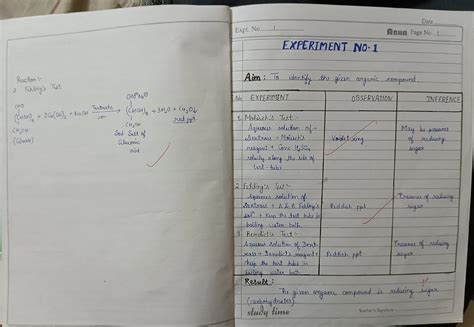 Reaction:-
1. Fehling's Test
CHO
(CHOH)4 + 2Cu(OH)2 + NaOH Tartrate → COO⁻Na⁺
(CHOH)4 + 3H2O + Cu2O↓
CH2OH
CH2OH
red ppt
(Glucose)
Sod Salt of
Gluconic
acid
Expt. No. 1
Date
Page No. 1
EXPERIMENT NO-1
Aim: To identify the given organic compound.
EXPERIMENT OBSERVATION INFERENCE
1. Molisch's Test:-
Aqueous solution of
dextrose + Molisch's
reagent + Conc H2SO4
slowly along the side of
test-tube
Violet ring
May be presence
of reducing
sugar
2. Fehling's Test:-
Aqueous solution of
dextrose + A & B Fehling's
sol + Keep the test tube in
boiling water bath
Reddish ppt
Presence of reducing
sugar
3. Benedict's Test:-
Aqueous solution of Dext-
rose + Benedict's reagent +
Keep the test tube in
boiling water bath
Reddish ppt
Presence of reducing
sugar
Result:
The given organic compound is reducing sugar
(carbohydrates)
study time
Teacher's Signature